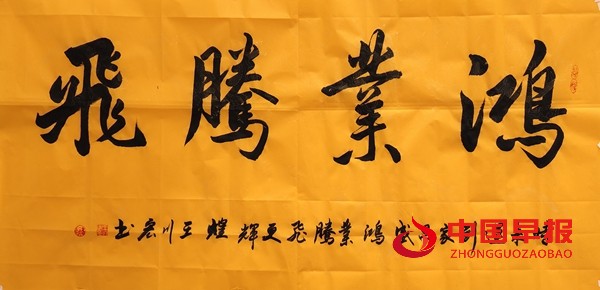 鴻業騰飛
到家盛鴻業騰飛更輝煌 川宏书
中国早报
ZHONGGUOZAOBAO